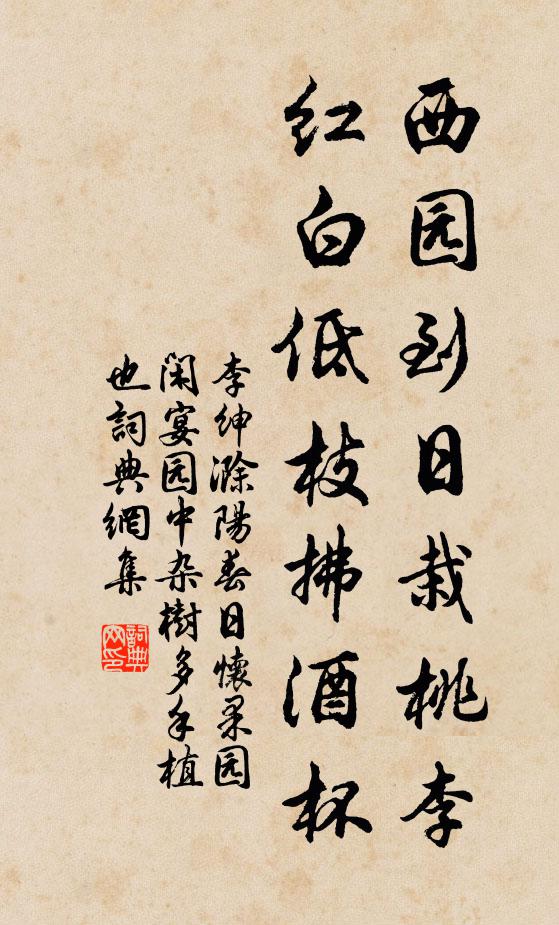 西园到日栽桃李
红白低枝拂酒杯
李绅滁陽春日懷果园
闲宴园中杂樹多手植
也詞典網集
詞典网印